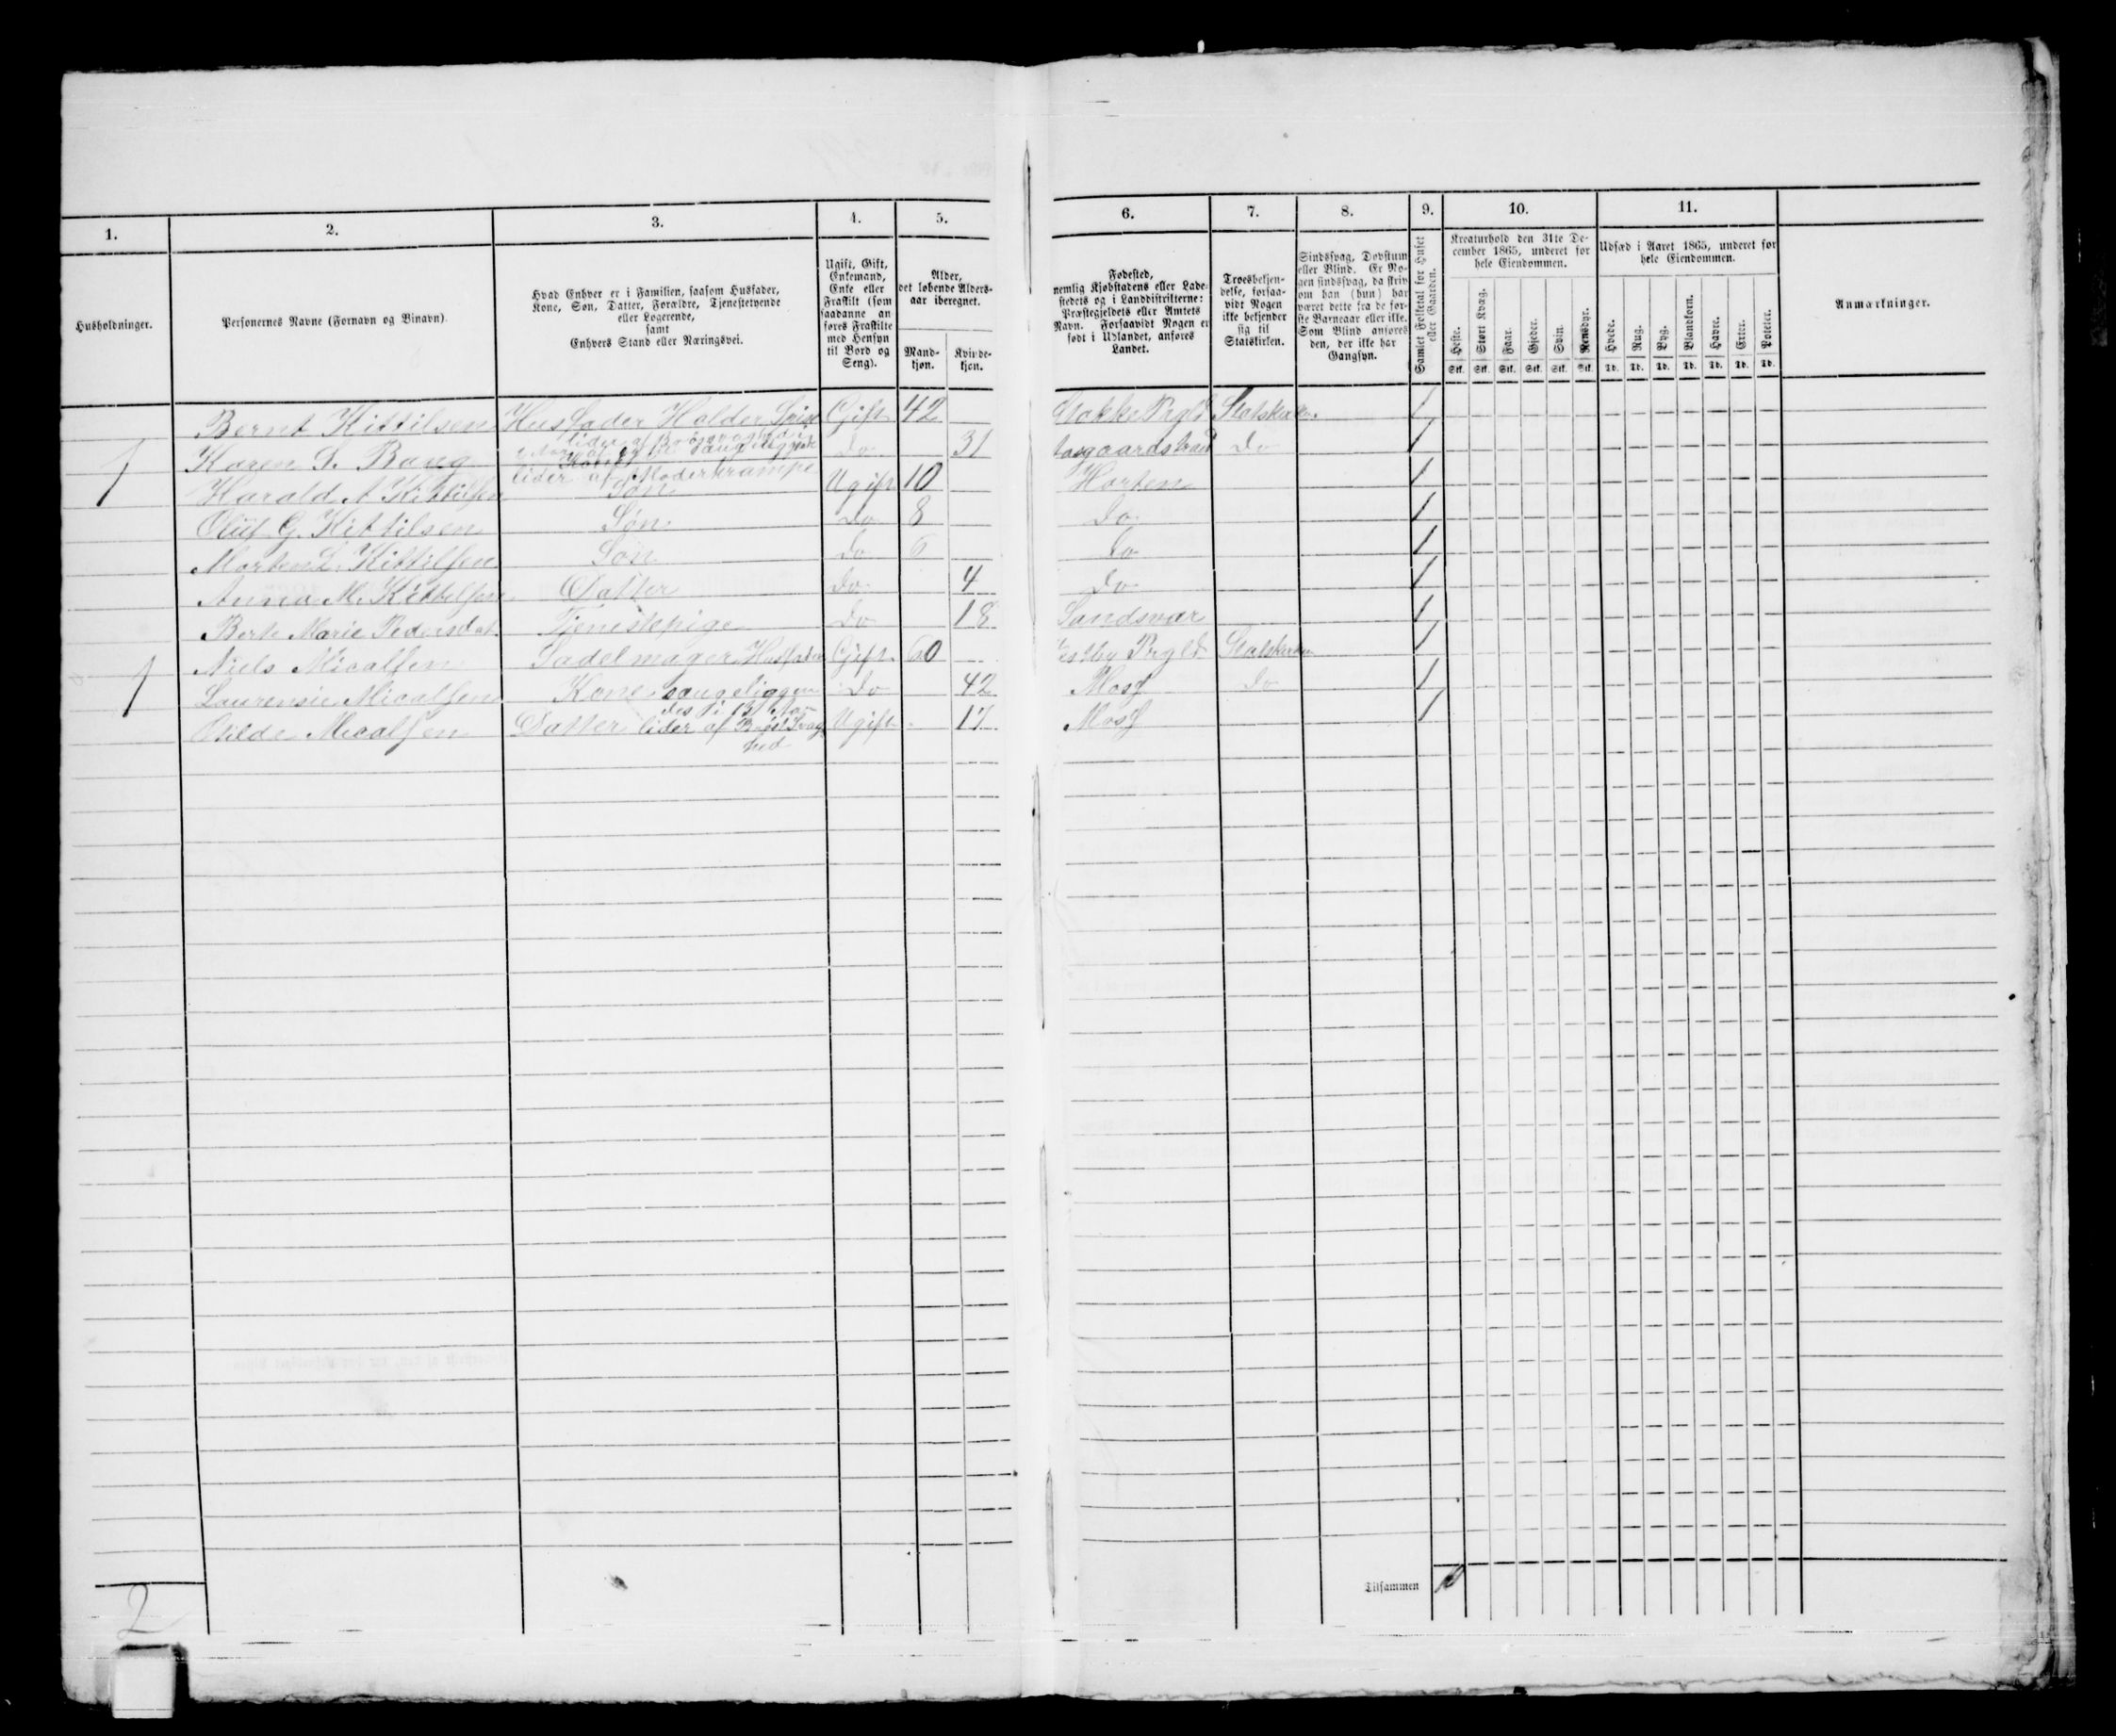 1. 2. 3. 4. 5. 6. 7. 8. 9. 10. 11.
Husholdninger.
Personernes Navne (Fornavn og Binavn).
Hvad Enhver er i Familien, saasom Husfader,
Kone, Søn, Datter, Forældre, Tjenestetyende
eller Logerende,
samt
Enhvers Stand eller Næringsvei.
Ugift, Gift,
Enkemand,
Enke eller
Fraskilt (som
saadanne an
føres Fraskilte
med Hensyn
til Bord og
Seng).
Alder,
det løbende Alders-
aar iberegnet.
Mand-
kjøn.
Kvinde-
kjøn.
Fødested,
nemlig Kjøbstadens eller Lade-
stedets og i Landdistrikterne:
Præstegjeldets eller Amtets
Navn. Forsaavidt Nogen er
født i Udlandet, anføres
Landet.
Troesbekjen-
delse, forsaa-
vidt Nogen
ikke bekjender
sig til
Statskirken.
Sindssvag, Døvstum
eller Blind. Er No-
gen sindssvag, da skriv
om han (hun) har
været dette fra de før-
ste Barneaar eller ikke.
Som Blind anføres
den, der ikke har
Gangsyn.
Samlet Folketal for Huset
eller Gaarden.
Kreaturhold den 31te De-
cember 1865, underet for
hele Eiendommen.
Heste. Stort Kvæg. Faar. Gjeder. Svin. Rensdyr.
Stk. Stk. Stk. Stk. Stk. Stk.
Udsæd i Aaret 1865, underet for
hele Eiendommen.
Hvede. Rug. Byg. Blandkorn. Havre. Erter. Poteter.
Td. Td. Td. Td. Td. Td. Td.
Anmærkninger.
Bernt Kittilsen Husfader Holder Gift 42 Stokke Prgld Statskirken 1
1 Karen S. Baug Kone do 31 do 1
lider af
Harald A Kittilsen Søn Ugift 10 Horten 1
Oluf G. Kittilsen Søn do 8 do 1
Morten L. Kittilsen Søn do 6 do 1
Anna M. Kittilsen Datter do 4 do 1
Berte Marie Pedersdat. Tjenestepige do 18 Sandsvær 1
Niels Micalsen Sadelmager Husfader Gift 60 Prgld Statskirken 1
1 Laurensie Micalsen Kone sængeliggen do 42 Moss do 1
des i
Otilde Micalsen Datter lider af Brøstsvag Ugift 17 Moss 1
hed
2
Tilsammen 10